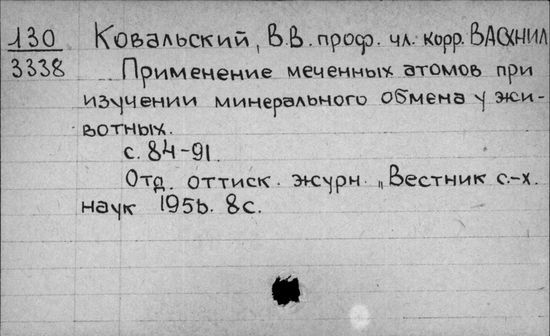 130 Ковальский, В.В. проф. чл. корр. ВАСХНИЛ
3338 Применение меченных атомов при
изучении минерального обмена у жи-
вотных.
с. 84-91.
Отд. оттиск. журн. „Вестник с.-х.
наук 1956. 8с.